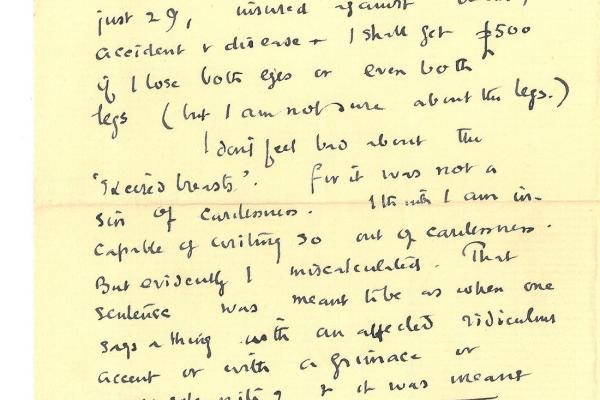 just 29, insured against
accident & disease & I shall get £500
if I lose both eyes or even both
legs (but I am not sure about the legs.)
I don't feel bad about the
breasts'. For it was not a
sin of carelessness. I think I am in-
capable of writing so out of carelessness.
But evidently I miscalculated. That
sentence was meant to be as when one
says a thing with an affected ridiculous
accent or with a grimace or
& it was meant